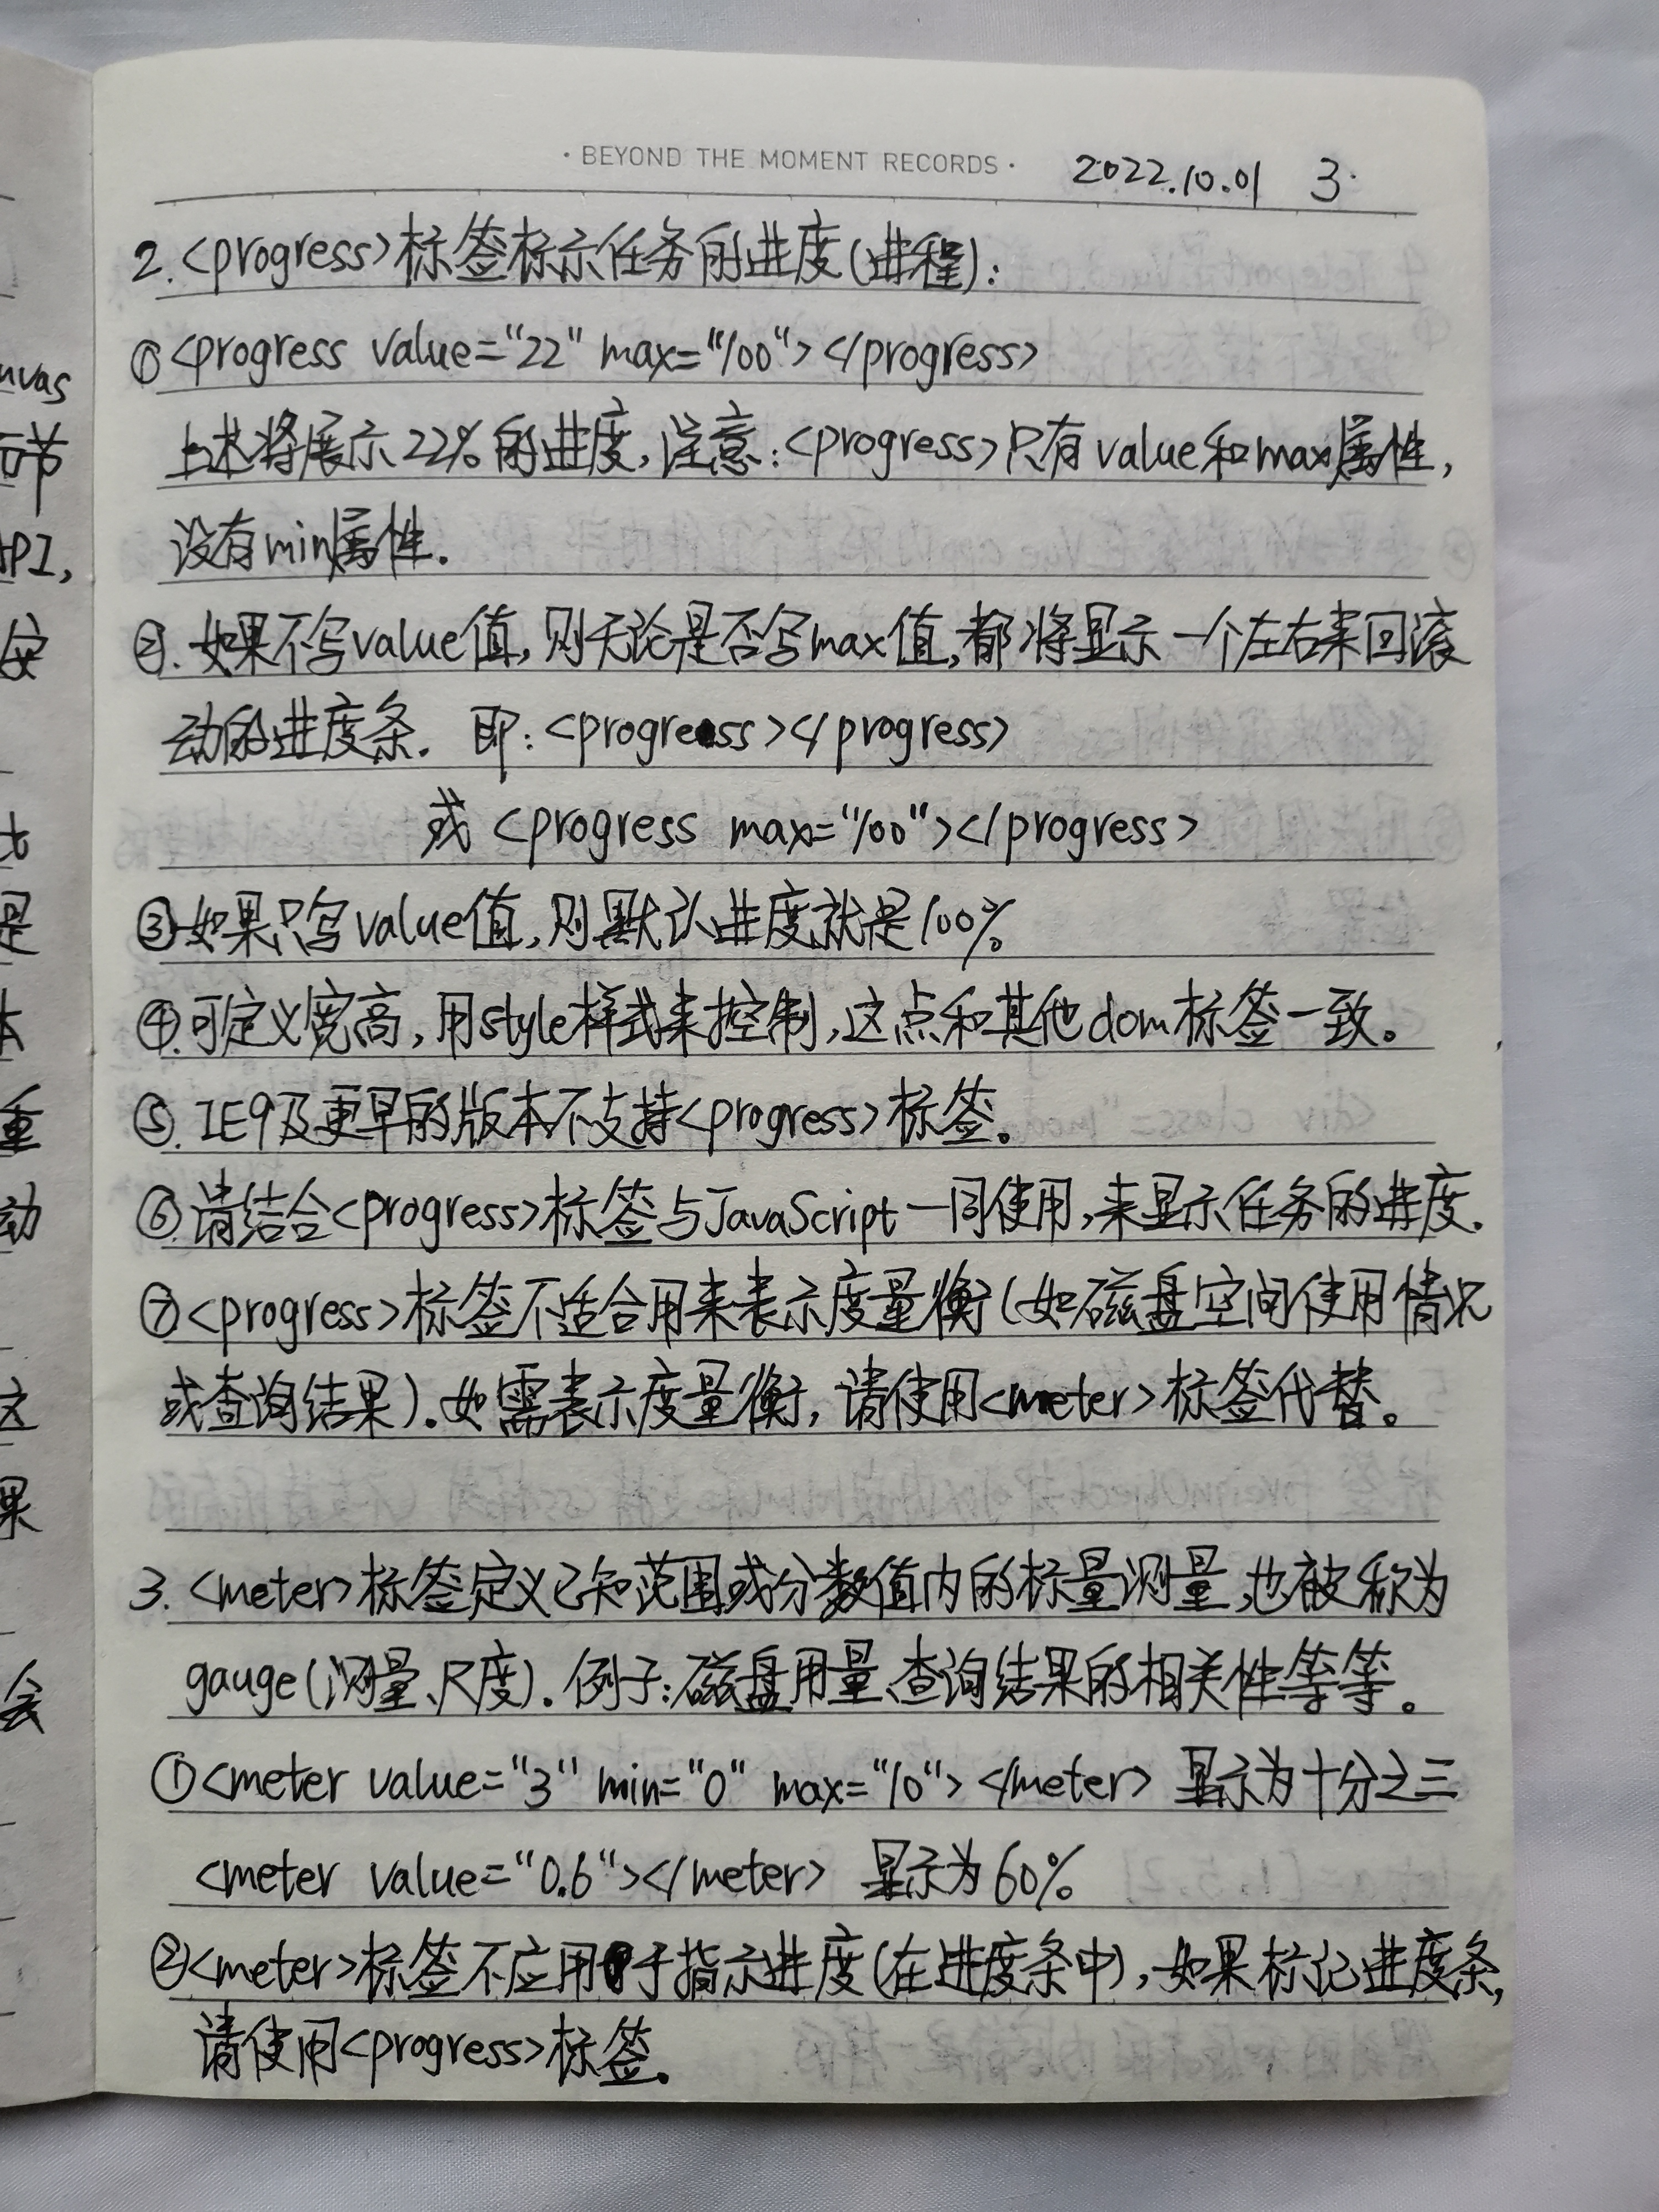 · BEYOND THE MOMENT RECORDS · 2022.10.01 3.
2.<progress>标签标示任务的进度(进程):
①<progress value="22" max="100"></progress>
上述将展示22%的进度,注意:<progress>只有value和max属性,
没有min属性.
②.如果不写value值,则无论是否写max值,都将显示一个左右来回滚
动的进度条. 即:<progress></progress>
或 <progress max="100"></progress>
③如果只写value值,则默认进度就是100%
④.可定义宽高,用style样式来控制,这点和其他dom标签一致。
⑤.IE9及更早的版本不支持<progress>标签。
⑥.请结合<progress>标签与JavaScript一同使用,来显示任务的进度.
⑦<progress>标签不适合用来表示度量衡(如磁盘空间使用情况
或查询结果).如需表示度量衡,请使用<meter>标签代替。
3.<meter>标签定义已知范围或分数值内的标量测量,也被称为
gauge(测量、尺度).例子:磁盘用量、查询结果的相关性等等。
①<meter value="3" min="0" max="10"></meter> 显示为十分之三
<meter value="0.6"></meter> 显示为60%
②<meter>标签不应用于指示进度(在进度条中),如果标记进度条,
请使用<progress>标签。
nvas
示节
API,
安
是
本
重
动
这
果
会